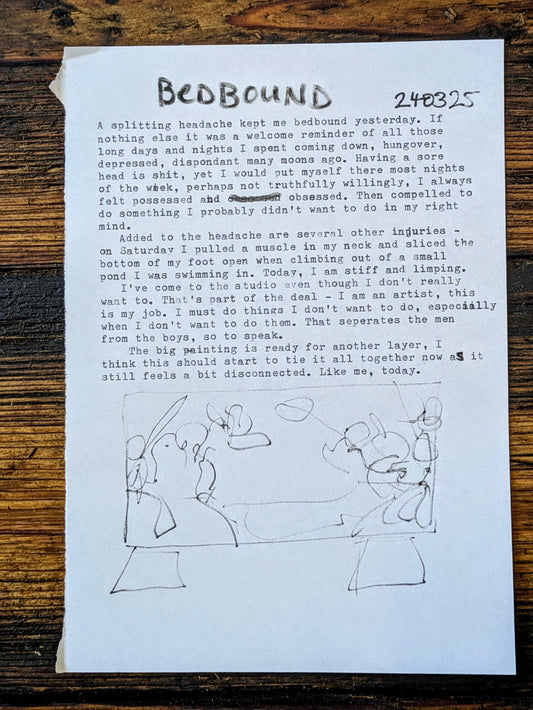 BEDBOUND
240325
A splitting headache kept me bedbound yesterday. If
nothing else it was a welcome reminder of all those
long days and nights I spent coming down, hungover,
depressed, dispondant many moons ago. Having a sore
head is shit, yet I would put myself there most nights
of the week, perhaps not truthfully willingly, I always
felt possessed and obsessed. Then compelled to
do something I probably didn't want to do in my right
mind.
Added to the headache are several other injuries -
on Saturday I pulled a muscle in my neck and sliced the
bottom of my foot open when climbing out of a small
pond I was swimming in. Today, I am stiff and limping.
I've come to the studio even though I don't really
want to. That's part of the deal - I am an artist, this
is my job. I must do things I don't want to do, especially
when I don't want to do them. That seperates the men
from the boys, so to speak.
The big painting is ready for another layer, I
think this should start to tie it all together now as it
still feels a bit disconnected. Like me, today.